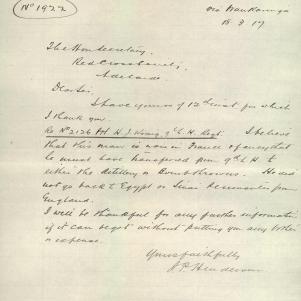 (No 1922)
15.3.17
The Hon Secretary,
Red Cross
Adelaide
Dear Sir,
I have yours of 12th inst for which
I thank you.
Re No 2126 Pvt H. J. 9th L H Regt. I believe
that this man is now in France & fancy that
he must have transferred from 9th L. H. to
either the Artillery or Bomb throwers. He did
not go back to Egypt or Sinai Peninsula from
England.
I will be thankful for any further information
if it can be got without putting you any bother
or expense.
Yours faithfully
J P Henderson